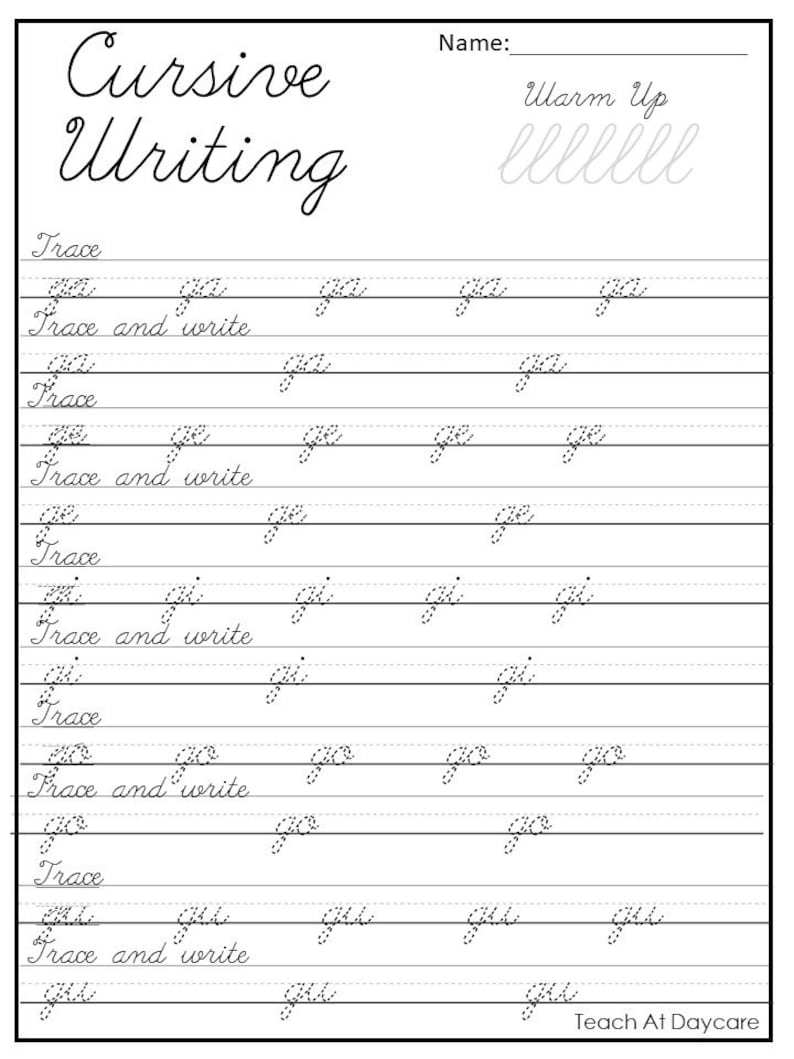 Cursive
Writing
Name:
Warm Up
lllllll
Trace
ga ga ga ga ga
Trace and write
ga ga ga
Trace
ge ge ge ge ge
Trace and write
ge ge ge
Trace
gi gi gi gi gi
Trace and write
gi gi gi
Trace
go go go go go
Trace and write
go go go
Trace
gu gu gu gu gu
Trace and write
gu gu gu
Teach At Daycare